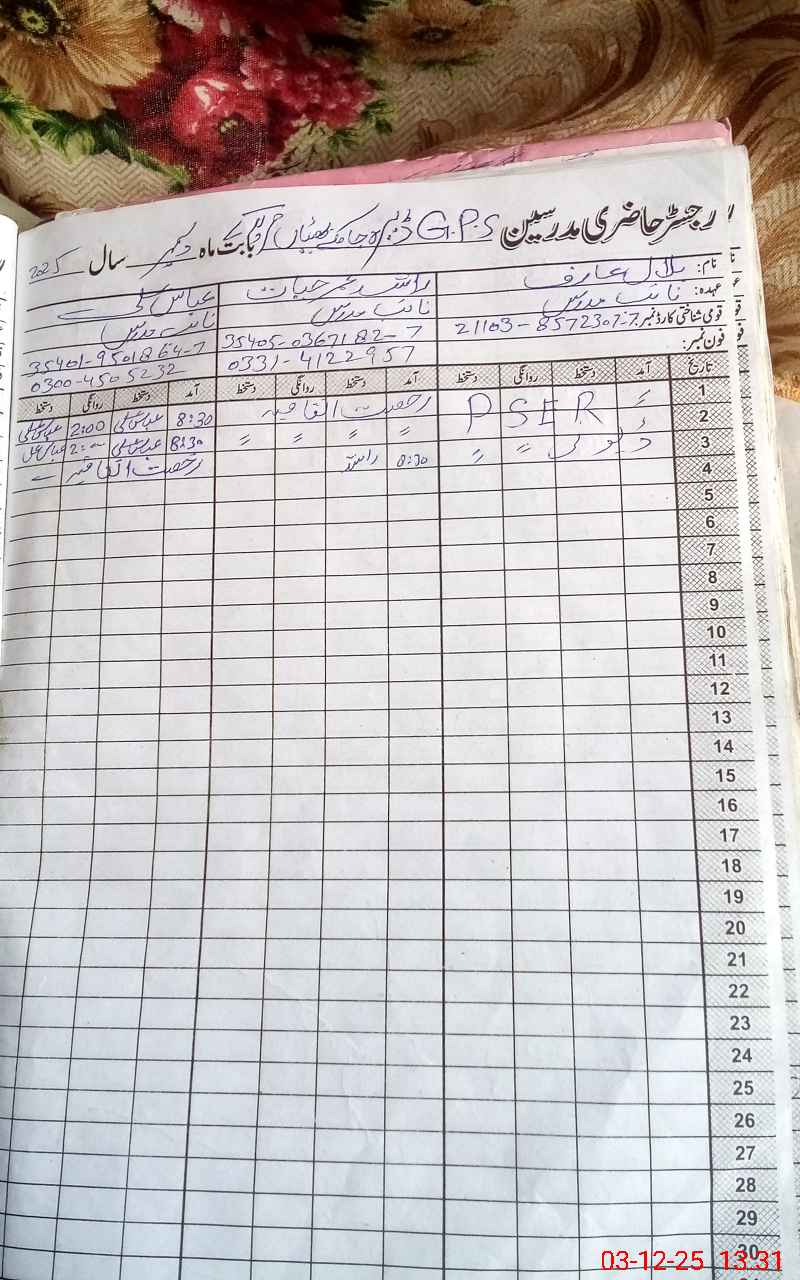 رجسٹر حاضری مدرسین G.P.S ڈیرہ حاکم بھٹیاں بابت ماہ دسمبر سال 2025
نام: بلال عارف راشد عمر حیات عباس علی
عہدہ: نائب مدرس نائب مدرس نائب مدرس
قومی شناختی کارڈ نمبر: 21103-8572307-7 35405-0367182-7 35401-9501864-7
فون نمبر: 0331-4122957 0300-4505232
تاریخ آمد دستخط روانگی دستخط آمد دستخط روانگی دستخط آمد دستخط روانگی دستخط
1 〃 PSER رخصت اتفاقیہ 8:30 عباس علی 2:00 عباس علی
2 ڈیوٹی 〃 〃 〃 〃 〃 〃 8:30 عباس علی 2:00 عباس علی
3 8:30 راشد رخصت اتفاقیہ
4
5
6
7
8
9
10
11
12
13
14
15
16
17
18
19
20
21
22
23
24
25
26
27
28
29
30
03-12-25 13:31